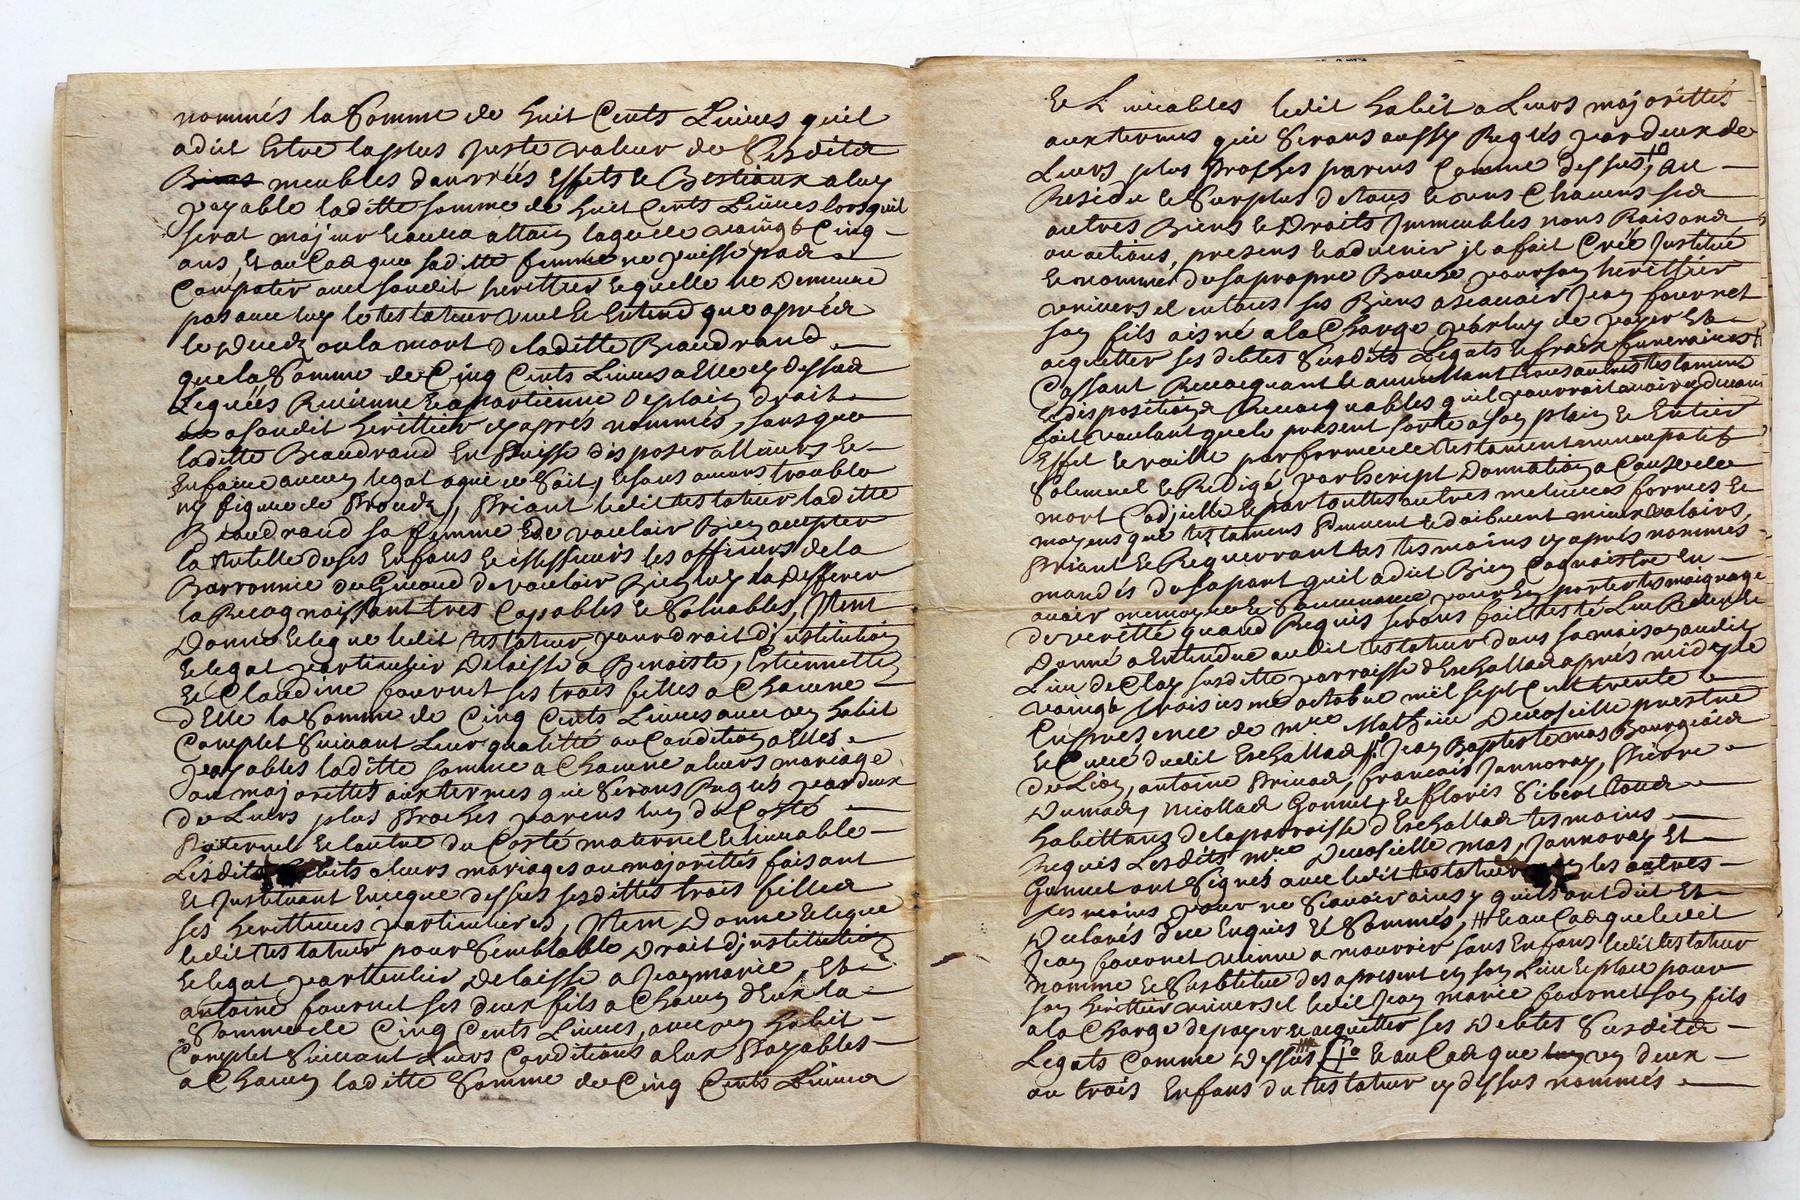 nommés la Somme de huit Cents Livres quil
a dit Estre la plus juste valeur de Sesdits
Biens meubles danrréés Effets & Bestiaux a luy
payable laditte somme de huit Cents Livres lorsquil
serat majeur & aura attain laage de vaingt Cinq
ans, Et au Cas que saditte femme ne puisse pas
Compater avec sondit herittier & quelle ne Demeure
pas avec luy le testateur veut & Entend que aprés
le Decedz ou la mort de laditte Beaudrand
que la Somme de Cinq Cents Livres a Elle cy dessus
Leguéés Revienne & apartienne De plain droit
a sondit herittier cy aprés nommés, sans que
laditte Beaudrand En Puisse disposer allieurs &
En faire aucun legat a qui ce Soit, & sans aucuns trouble
ny figure de Proudz, Priant ledit testateur laditte
Beaudrand sa femme De vouloir Bien accepter
la tutelle de ses Enfans & Messieurs les officiers de la
Barronnie de Givord de vouloir Bien luy la Defferer
la Recognoissant tres Capables & Solvables, Item
Donne & legue ledit testateur pour droit d'institution
& legat particulier Delaisse a Benoiste, Estiennette
& Claudine fournet ses trois filles a Chacune
d'Elle la Somme de Cinq Cents Livres avec un habit
Complet Suivant Leur qualitté ou Condition a Elles
payables laditte somme a Chacune a leurs mariage
ou majorittés aux termes que Serons Reglés par deux
de Leurs plus Proches parens luy du Costé
Paternel & lautre du Costé maternel & livrable
Lesdits habits a leurs mariages ou majorittés faisant
Et Instituant Encque dessus sesdittes trois filles
ses herittieres particulieres, Item Donne & legue
ledit testateur pour Semblable Droit d'institution
& legat particulier, delaisse a Jean marie, Et
antoine fournet ses deux fils a Chacun d'Eux la
Somme de Cinq Cents Livres, avec un habit
Complet Suivant Leurs Conditions a Eux Payables
a Chacun laditte Somme de Cinq Cents Livres
& Livrables ledit habit a Leurs majorittés
aux termes qui Serons aussy Reglés par deux de
Leurs plus Proches parens Comme dessus, au
Residu & Surplus de tous & uns Chacuns ses
autres Biens & Droits Immeubles noms Raisons
ou actions, presens & advenir il a fait Créé Institué
& nommé de sa propre Bouche pour son herittier
universel en tous ses Biens a scavoir Jean fournet
son fils aisné a la Charge par luy de payer Et
acquitter ses debtes Susdits Legats & fraix funeraires
Cassant Revocquant & annullant tous autres testament
& dispositions Revocquables quil pourrait avoir cy devant
fait voulant que le present sorte a son plain & Entier
Effet & vaille par forme de testament nuncupatif
Solemnel & Redigé par Escript Donnation a Cause de
mort Codicille & par touttes autres meilieures formes &
moyens que testamens Peuvent & doibvent mieux valoirs,
Priant & Requerrant les tesmoins cy aprés nommés
mandés de sa part quil a dict Bien Cognoistre En
avoir memoyre & Souvenance pour En porter tesmoignage
de veritté quand Requis serons fait testé Leu Releu &
Donné a Entendre audit testateur dans sa maison audit
Lieu de Clay susditte parroisse d'Eschallas aprés midy le
vaingt troisiesme octobre mil sept Cent trente
En presence de mre Mathieu Decoseille prestre
& Curé dudit Eschallas, Sr Jean Baptiste mas Bourgeois
de Lion, antoine Privas, francois Jannoray, Pierre
Dumas, nicollas Gonnet, & floris Sibert tous
habittans de la parroisse d'Eschallas tesmoins
Requis Lesdits mre Decoseille mas, Jannoray Et
Gonnet ont Signés avec ledit testateur les autres
tesmoins pour ne Scavoir ainsy quils ont dict Et
Declarés d'ce Enquis & Sommés, & au Cas que ledit
Jean fournet vienne a mourrir sans Enfans ledit testateur
nomme & Substitue des apresent en son Lieu & place pour
son herittier universel ledit Jean marie fournet son fils
a la Charge de payer & acquitter ses Debtes Susdits
Legats Comme Dessus & au Cas que un deux
ou trois Enfans du testateur cy dessus nommés